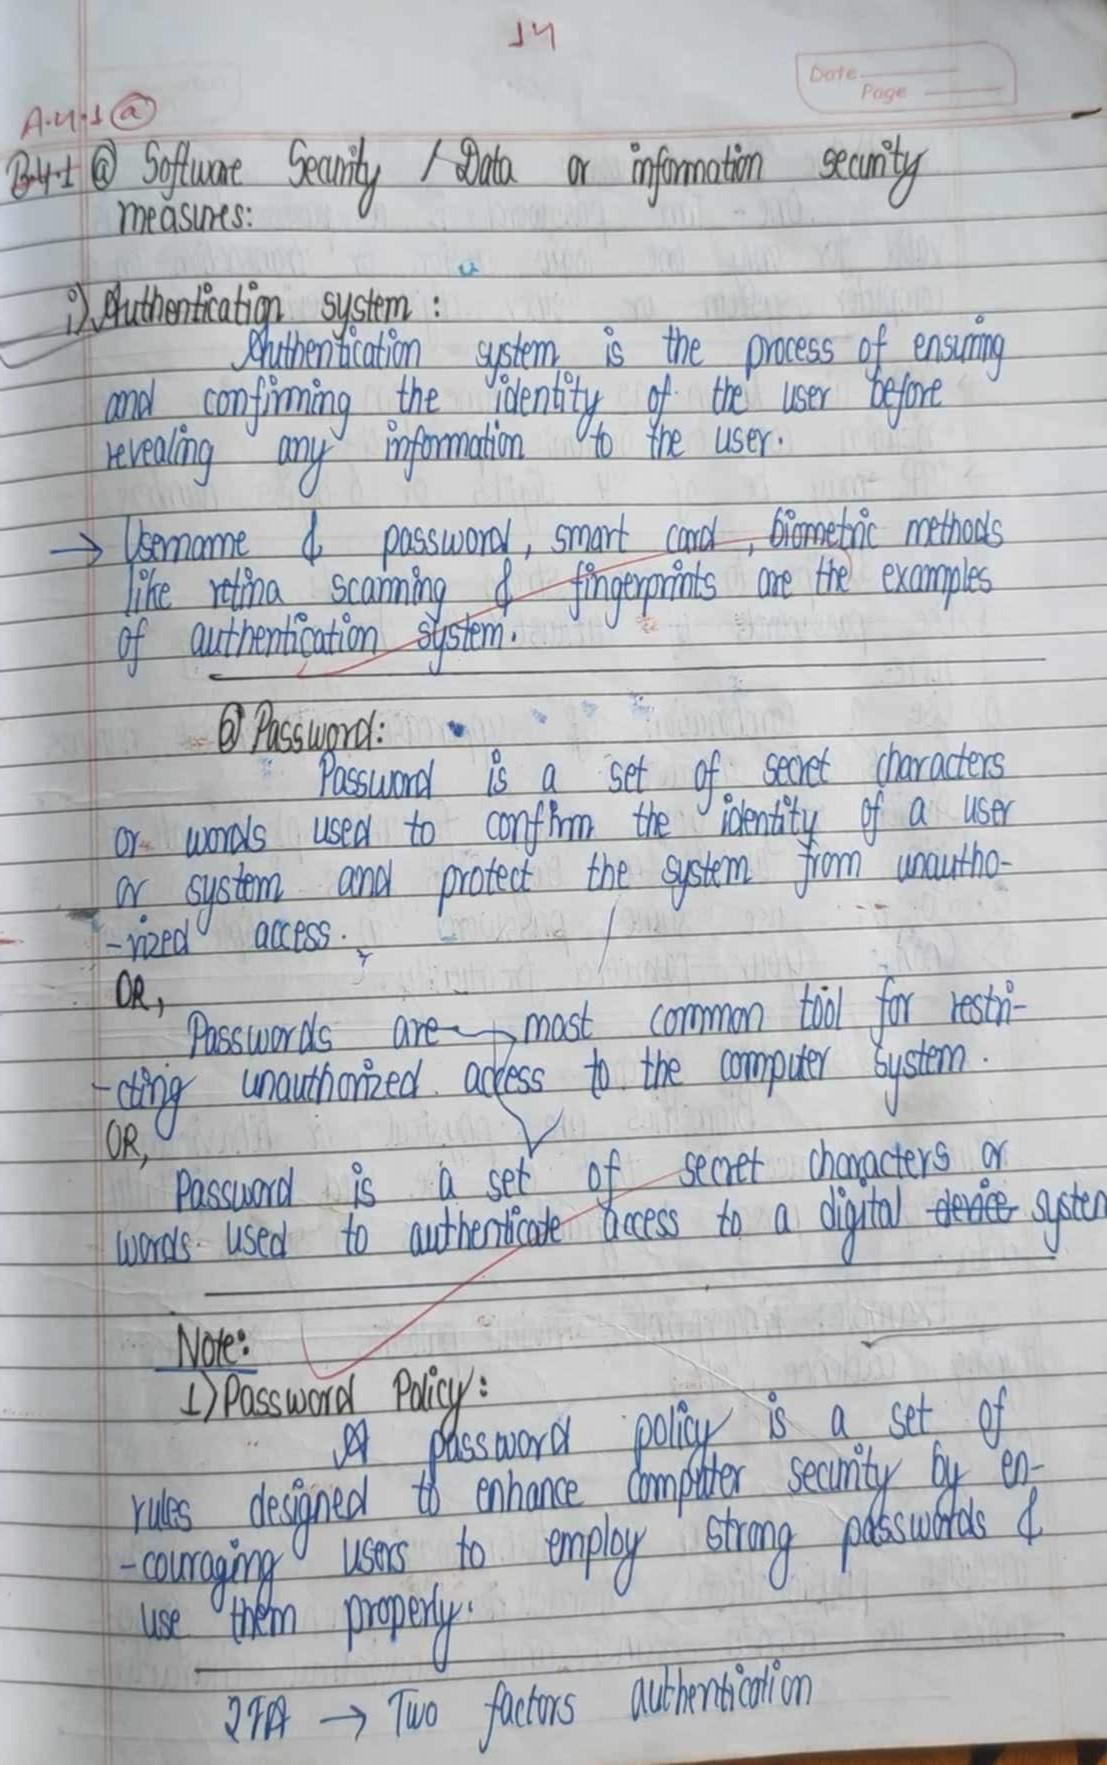 14
Date
Page
A.4.1 (a)
B.4.1 @ Software Security / Data or information security
measures:
i) Authentication system :
Authentication system is the process of ensuring
and confirming the identity of the user before
revealing any information to the user.
→ Username & password, smart card, biometric methods
like retina scanning & fingerprints are the examples
of authentication system.
Password:
Password is a set of secret characters
or words used to confirm the identity of a user
or system and protect the system from unautho-
-rized access.
OR,
Passwords are most common tool for restri-
-cting unauthorized access to the computer system.
OR,
Password is a set of secret characters or
words used to authenticate access to a digital device system
Note:
1) Password Policy:
A password policy is a set of
rules designed to enhance computer security by en-
-couraging users to employ strong passwords &
use them properly.
2FA → Two factors authentication